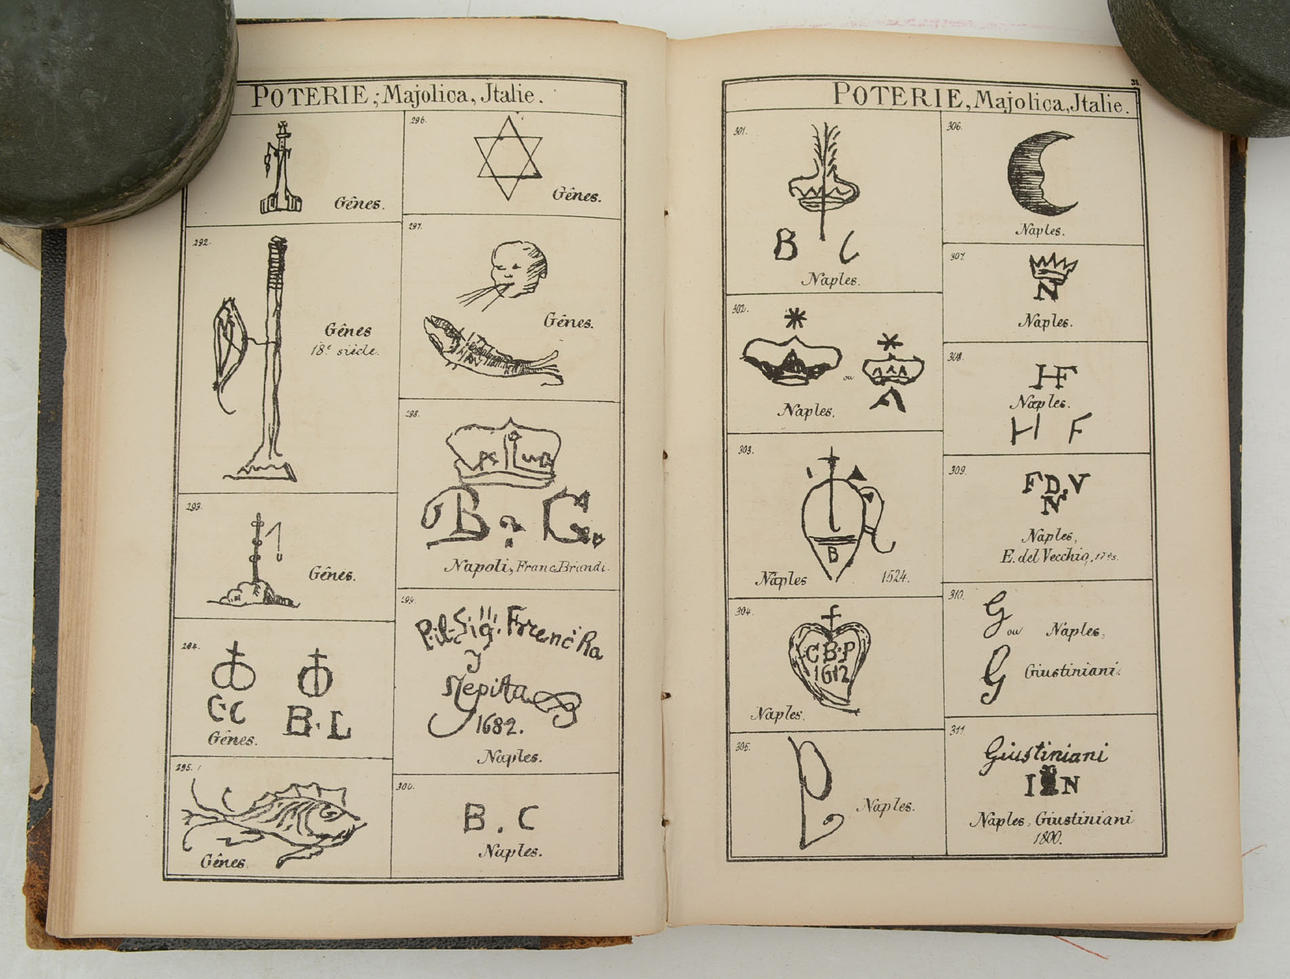 POTERIE; Majolica, Jtalie.
Gênes.
292.
Gênes
18e siècle.
293.
Gênes.
294.
C·C
B·L
Gênes.
295.
Gênes.
296.
Gênes.
297.
Gênes.
298.
B G.
Napoli, Franc Brandi.
299.
Sig.
1682.
Naples.
300.
B. C
Naples.
POTERIE, Majolica, Jtalie.
31
301.
B C
Naples.
302.
ou
A
Naples.
303.
B
Naples 1524.
304.
C B·P
1612
Naples.
305.
P
Naples.
306.
Naples.
307.
N
Naples.
308.
HF
Naples.
H F
309.
F D V
N
Naples,
E. del Vecchio,
310.
G
ou Naples,
G Giustiniani.
311.
Giustiniani
I N
Naples, Giustiniani
1800.